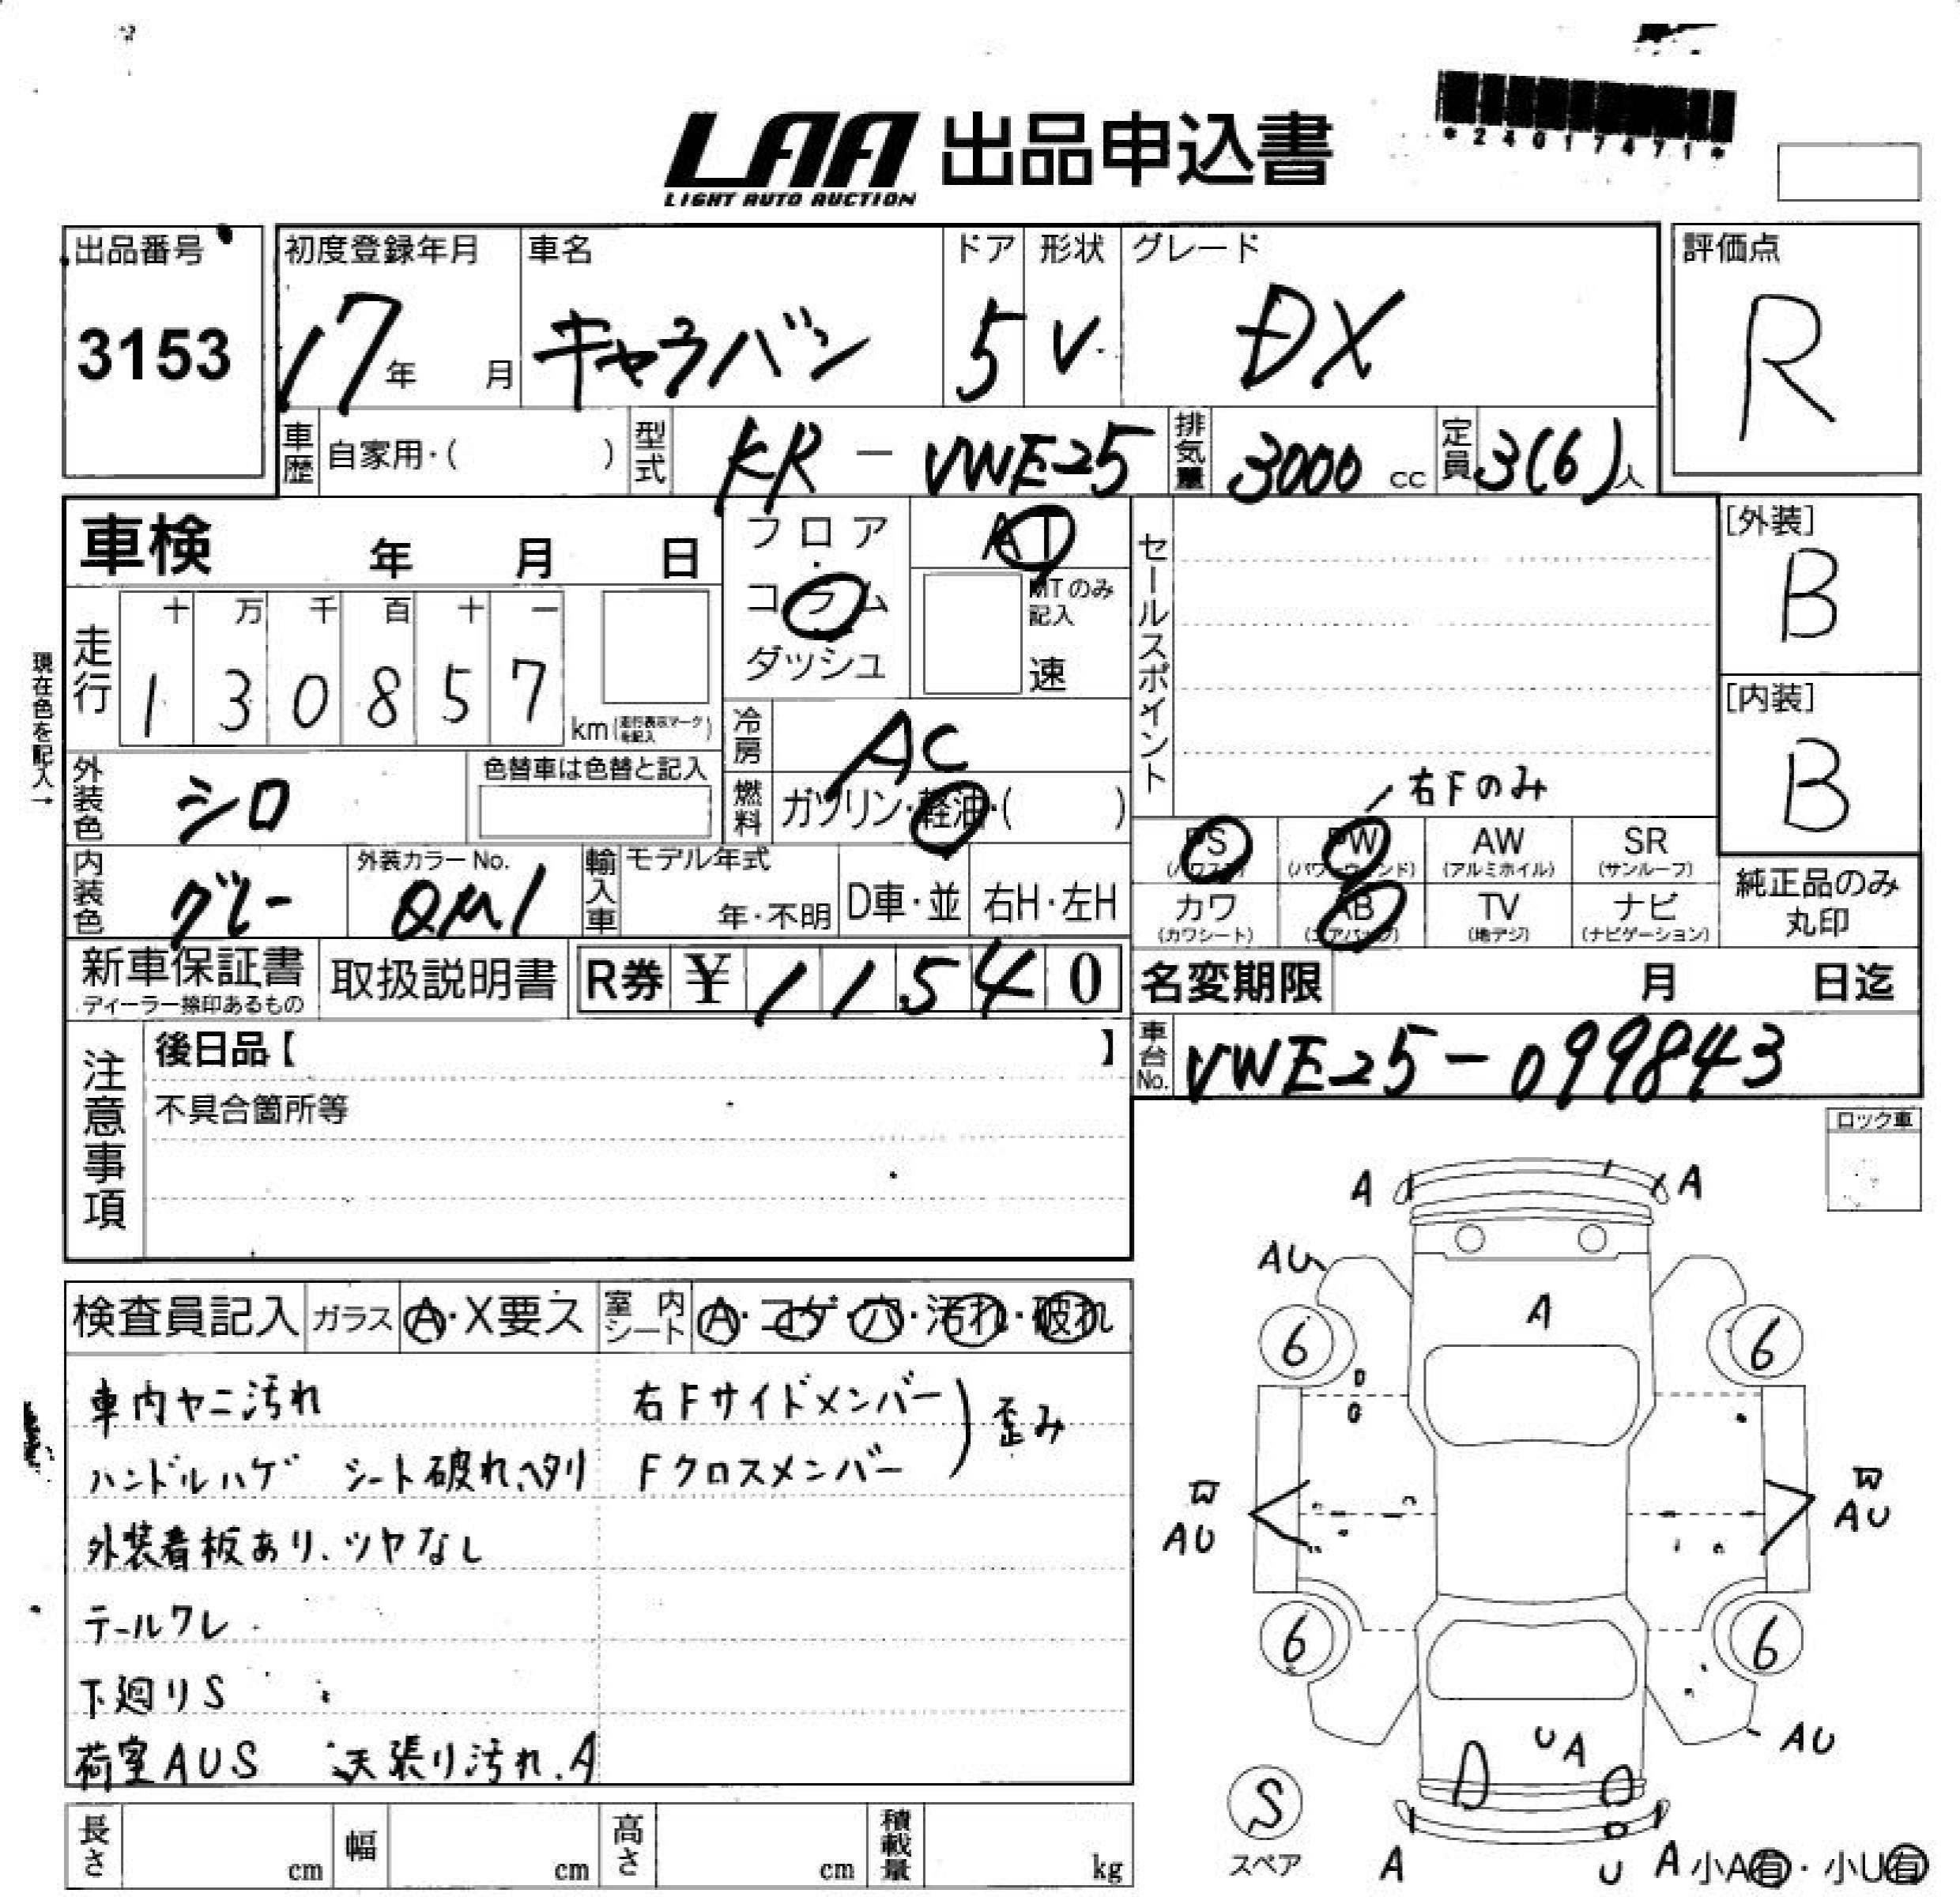 *24017471*
LAA 出品申込書
LIGHT AUTO AUCTION
出品番号 3153
初度登録年月 17年 月
車名 キャラバン
ドア 5
形状 V
グレード DX
評価点 R
車歴 自家用・( )
型式 KR-VWE25
排気量 3000 cc
定員 3(6)人
車検 年 月 日
フロア・コラム・ダッシュ
AT
MTのみ記入
速
セールスポイント
[外装] B
[内装] B
現在色を記入→
走行 十 万 千 百 十 一
1 3 0 8 5 7 km(走行表示マークを記入)
冷房 AC
燃料 ガソリン・軽油・( )
外装色 シロ
色替車は色替と記入
内装色 グレー
外装カラーNo. QM1
輸入車 モデル年式 年・不明
D車・並
右H・左H
右Fのみ
PS (パワステ)
PW (パワーウィンド)
AW (アルミホイル)
SR (サンルーフ)
カワ (カワシート)
AB (エアバッグ)
TV (地デジ)
ナビ (ナビゲーション)
純正品のみ丸印
新車保証書
ディーラー捺印あるもの
取扱説明書
R券 ¥ 11540
名変期限 月 日迄
車台No. VWE25-099843
注意事項
後日品【 】
不具合箇所等
ロック車
検査員記入 ガラス A・X要ス
室内シート A・コゲ・穴・汚れ・破れ
車内ヤニ汚れ 右Fサイドメンバー
ハンドルハゲ シート破れ、ヘタリ Fクロスメンバー )歪み
外装看板あり、ツヤなし
テールワレ
下廻りS
荷室AUS 天張り汚れ.A
A A
AU
A
6 6
W W
AU AU
6 6
U A
AU
S
スペア
A U A
小A有・小U有
長さ cm
幅 cm
高さ cm
積載量 kg